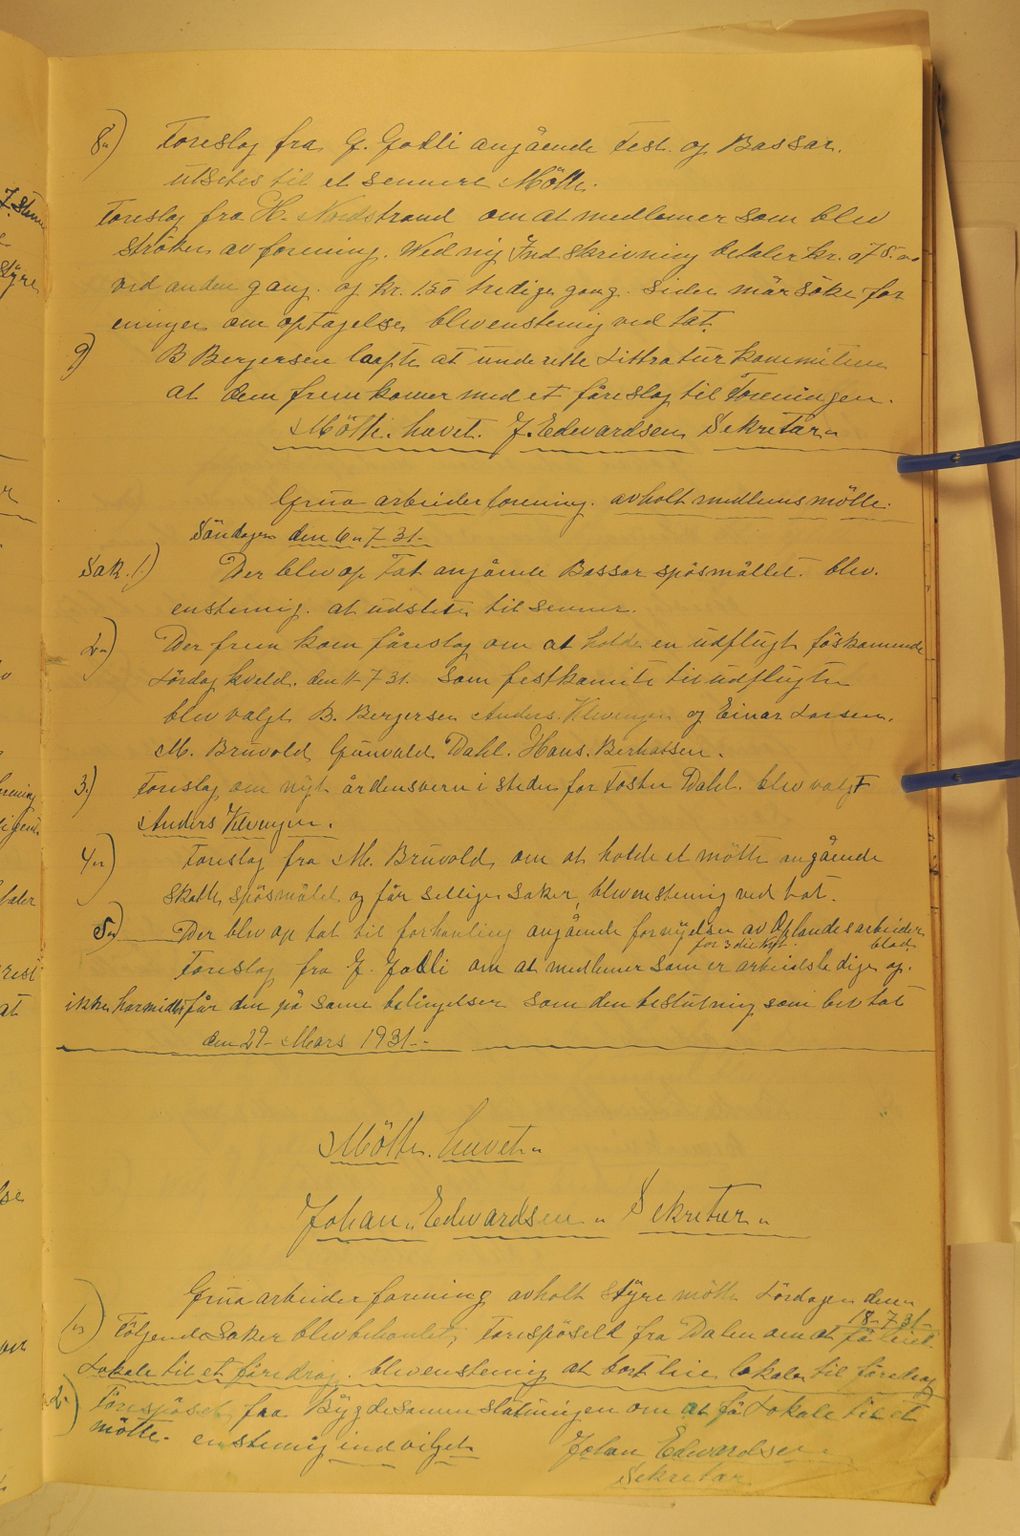 8") Foreslag fra G. Godli angående Fest og Bassar.
utsetes til et sennere Mötte.
Foreslag fra H. Nordstrand om at medlemer som blev
ströken av forening. Wed ny Indskrivning betaler kr. 075.00
ved anden gang. og kr. 1.50 tredige gang. siden mår söke for
eningen om optagelse, blev enstemig ved tat.
9) B Bergersen lovte at underette Littratur kommiteen
at dem frem komer med et föreslag til Foreningen.
Mötte. hævet. J. Edwardsen Sekretär"
Grua arbeiderforening. avholt medlemsmötte.
Söndagen den 6" 7-31-
Sak. 1) Der blev op Tat angående Bassar spösmållet. blev.
enstemig. at udsletes til senner.
2") Der frem kom föreslag om at holde en udflugt föskomende
Lördag kveld. den 11-7 31. Som festkomite til udflugten
blev valgt B. Bergersen Anders. Klevengen og Einar Larsen.
M. Bruvold, Gunvald Dahl. Hans. Berhatsen.
3.) Foreslag om nyt årdensvern i steden for Toster Dahl. blev valgt
Anders Klvengen.
4") Foreslag fra M. Bruvold, om at holde et mötte angående
skatte, spösmålet og får sellige saker, blev enstemig ved tat.
5") Der blev op tat til forhanling angående fornyelsen av Oplandes arbeider
for 3die kvt. blad
Foreslag fra G. Godli om at medlemer som er arbeidsledige og.
ikke har midler får den på same betingelser som den beslutning som blev tat
den 29- Mars 1931-.
Mötte. hævet."
Johan" Edwardsen " Sekretær"
Grua arbeider forening avholt styre mötte Lördagen den"
18-7-31-
1") Fölgende Saker blev behanlet, Forespösell fra Dalen om at få leiet
Lokale til et föredrag. blev enstemig at bort leie lokale til föredrag
2") Forespösel fra Bygdesamenslutningen om at få Lokale til et
mötte. enstemig indvilget Johan Edwardsen.
Sekretär